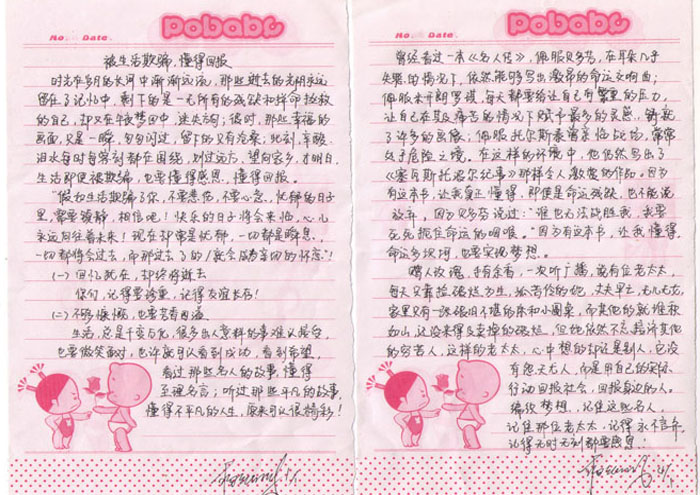 Pobabe
No. Date.
被生活欺骗,懂得回报
时光在岁月的长河中渐渐远流,那些逝去的光阴永远
留在了记忆中,剩下的是一无所有的残缺和拼命拯救
的自己,却又在午夜梦回中迷失方向;彼时,那些幸福的
画面,只是一瞬,匆匆闪过,留下的只有沧桑;此刻,辛酸
泪水每时每客刻都在围绕,别过远方,望向家乡,才明白,
生活即使被欺骗,也要懂得感恩、懂得回报。
“假如生活欺骗了你,不要悲伤,不要心急,忧郁的日子
里,需要镇静,相信吧!快乐的日子将会来临,心儿
永远向往着未来!现在却常是忧郁,一切都是瞬息,
一切都将会过去,而那过去了的!就会成为亲切的怀恋”!
(一)回忆就在,却终将逝去
你们,记得要珍重,记得友谊长存!
(二)不够慷慨,也要笑着面对
生活,总是千变万化,很多出人意料的事难以接受,
也要微笑面对,也许就可以看到成功,看到希望,
看过那些名人的故事,懂得
至理名言;听过那些平凡的故事,
懂得不平凡的人生,原来可以很精彩!
Pobabe
No. Date.
曾经看过一本《名人传》,佩服贝多芬,在耳朵几乎
失聪的情况下,依然能够写出激昂的命运交响曲;
佩服米开朗罗琪,每天都要给让自己有繁重的压力,
让自己在贫困痛苦的情况下赋予最多的灵感,铸就
了许多的画像;佩服托尔斯泰萧亲临战场,常常
处于危险之境。在这样的环境中,他依然写出了
《塞瓦斯托波尔纪事》那样令人激赏的作品。因为
有这本书,让我真正懂得,即使是命运残缺,也不能说
放弃,因为贝多芬说过:“谁也无法战胜我,我要
死死扼住命运的咽喉。”因为有这本书,让我懂得
命运多坎坷,也要实现梦想。
赠人玫瑰,手有余香,一次听广播,说有位老太太,
每天只靠捡破烂为生,孤苦伶仃的她,丈夫早亡,无儿无女,
家里只有一张破旧不堪的床和小圆桌,而其他的就堆积
如山,还没来得及卖掉的破烂,但她依然不忘接济其他
的穷苦人,这样的老太太,心中想的却还是别人,它没
有怨天尤人,而是用自己的实际
行动回报社会,回报身边的人。
编织梦想,记住这些名人,
记住那位老太太,记得永不言弃,
记得无时无刻都要感恩!